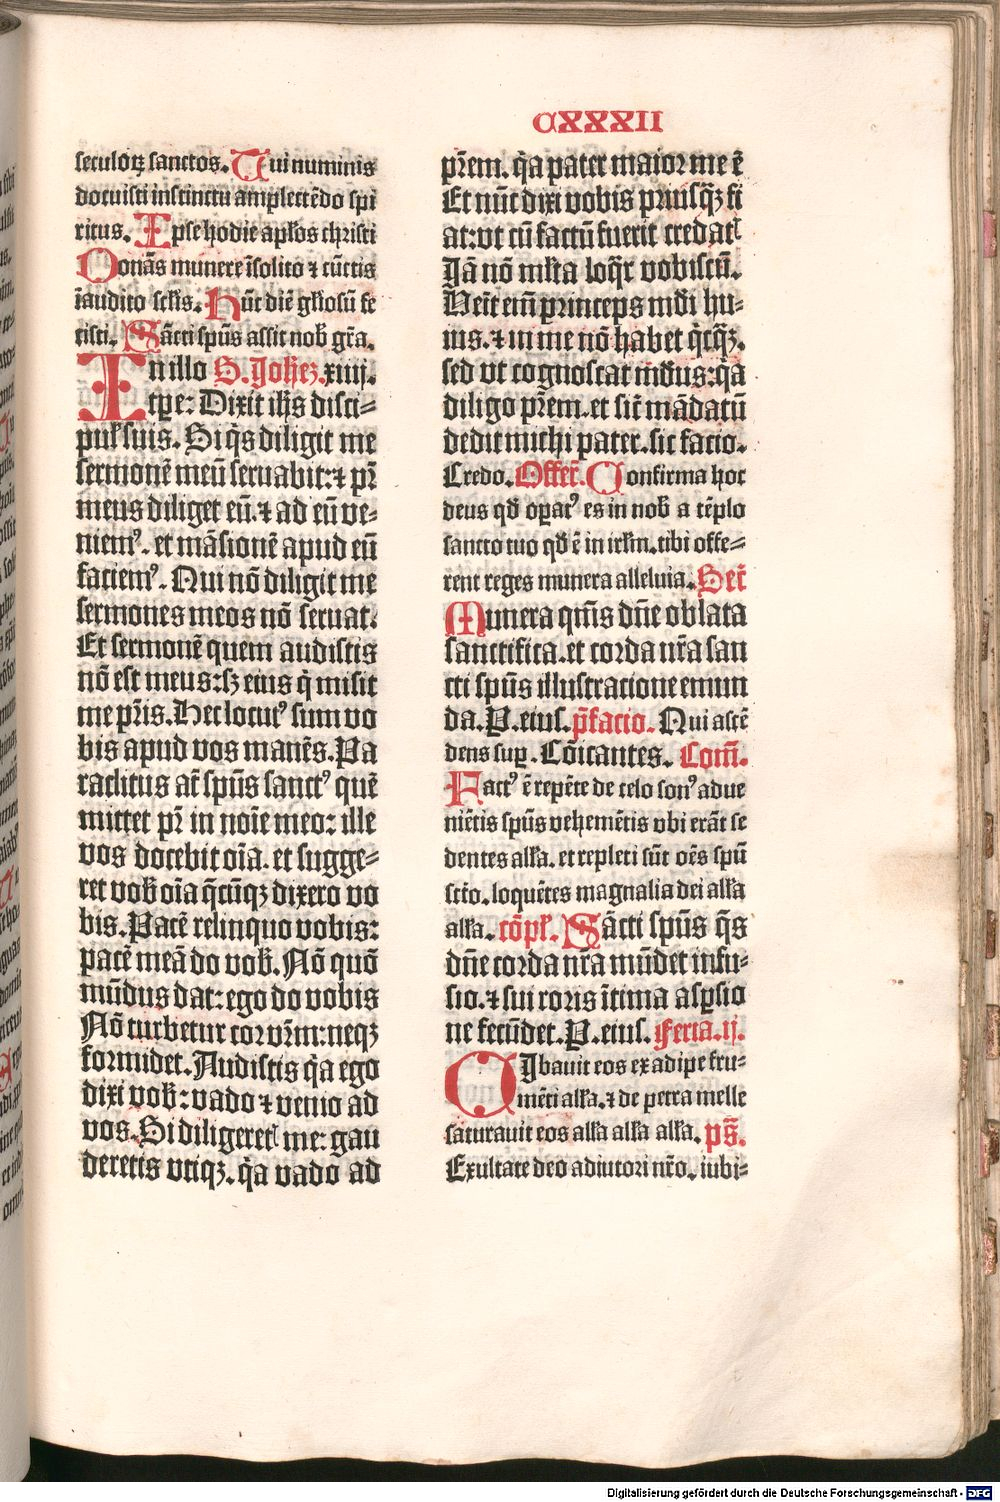 CXXXII
seculoꝝ sanctos. Tui numinis
docuisti instinctu amplectẽdo spi
ritus. Ipse hodie apłos christi
Donãs munere ĩsolito ⁊ cũctis
ĩaudito sclĩs. Hũc diẽ gliosũ fe
cisti. Sãcti spũs assit nob̃ gr̃a.
In illo S. Johez. xiiij.
tp̃e: Dixit ihs disci⸗
pul̃ suis. Si q̃s diligit me
sermonẽ meũ seruabit: ⁊ pr̃
meus diliget eũ. ⁊ ad eũ ve⸗
niemꝰ. et mãsionẽ apud eũ
faciemꝰ. Qui nõ diligit me
sermones meos nõ seruat.
Et sermonẽ quem audistis
nõ est meus: sꝫ eius q̃ misit
me pr̃is. Hec locutꝰ sum vo
bis apud vos manẽs. Pa
raclitus aũt spũs sanctꝰ quẽ
mittet pr̃ in noĩe meo: ille
vos docebit oĩa. et sugge⸗
ret vob̃ oĩa q̃cũqꝫ dixero vo
bis. Pacẽ relinquo vobis:
pacẽ meã do vob̃. Nõ quõ
mũdus dat: ego do vobis
Nõ turbetur cor vr̃m: neqꝫ
formidet. Audistis q̃a ego
dixi vob̃: vado ⁊ venio ad
vos. Si diligeretꝭ me: gau
deretis vtiqꝫ. q̃a vado ad
pr̃em. q̃a pater maior me ẽ
Et nũc dixi vobis priusq̃ꝫ fi
at: vt cũ factũ fuerit credatꝭ
Jã nõ ml̃ta loq̃r vobiscũ.
Venit em̃ princeps mũdi hu⸗
ius. ⁊ in me nõ habet q̃cq̃ꝫ.
sed vt cognoscat mũdus: q̃a
diligo pr̃em. et sic̃ mãdatũ
dedit michi pater. sic facio.
Credo. Offer̃. Confirma hoc
deus qđ opatꝰ es in nob̃ a tẽplo
sancto tuo qđ ẽ in irl̃m. tibi offe⸗
rent reges munera alleluia. Secr̃
Munera qm̃s dñe oblata
sanctifica. et corda nr̃a san
cti spũs illustratione emun
da. P. eius. p̃facio. Qui ascẽ
dens sup. Cõicantes. Com̃.
Factꝰ ẽ repẽte de celo sonꝰ adue
niẽtis spũs vehemẽtis vbi erãt se
dentes alła. et repleti sũt oẽs spũ
sctõ. loquẽtes magnalia dei alła
alła. cõpl̃. Sãcti spũs q̃s
dñe corda nr̃a mũdet infu⸗
sio. ⁊ sui roris ĩtima asp̱sio
ne fecũdet. P. eius. Feria. ij.
Cibauit eos ex adipe fru⸗
mẽti alła. ⁊ de petra melle
saturauit eos alła alła alła. ps̃.
Exultate deo adiutori nr̃o. iubi⸗
Digitalisierung gefördert durch die Deutsche Forschungsgemeinschaft - DFG